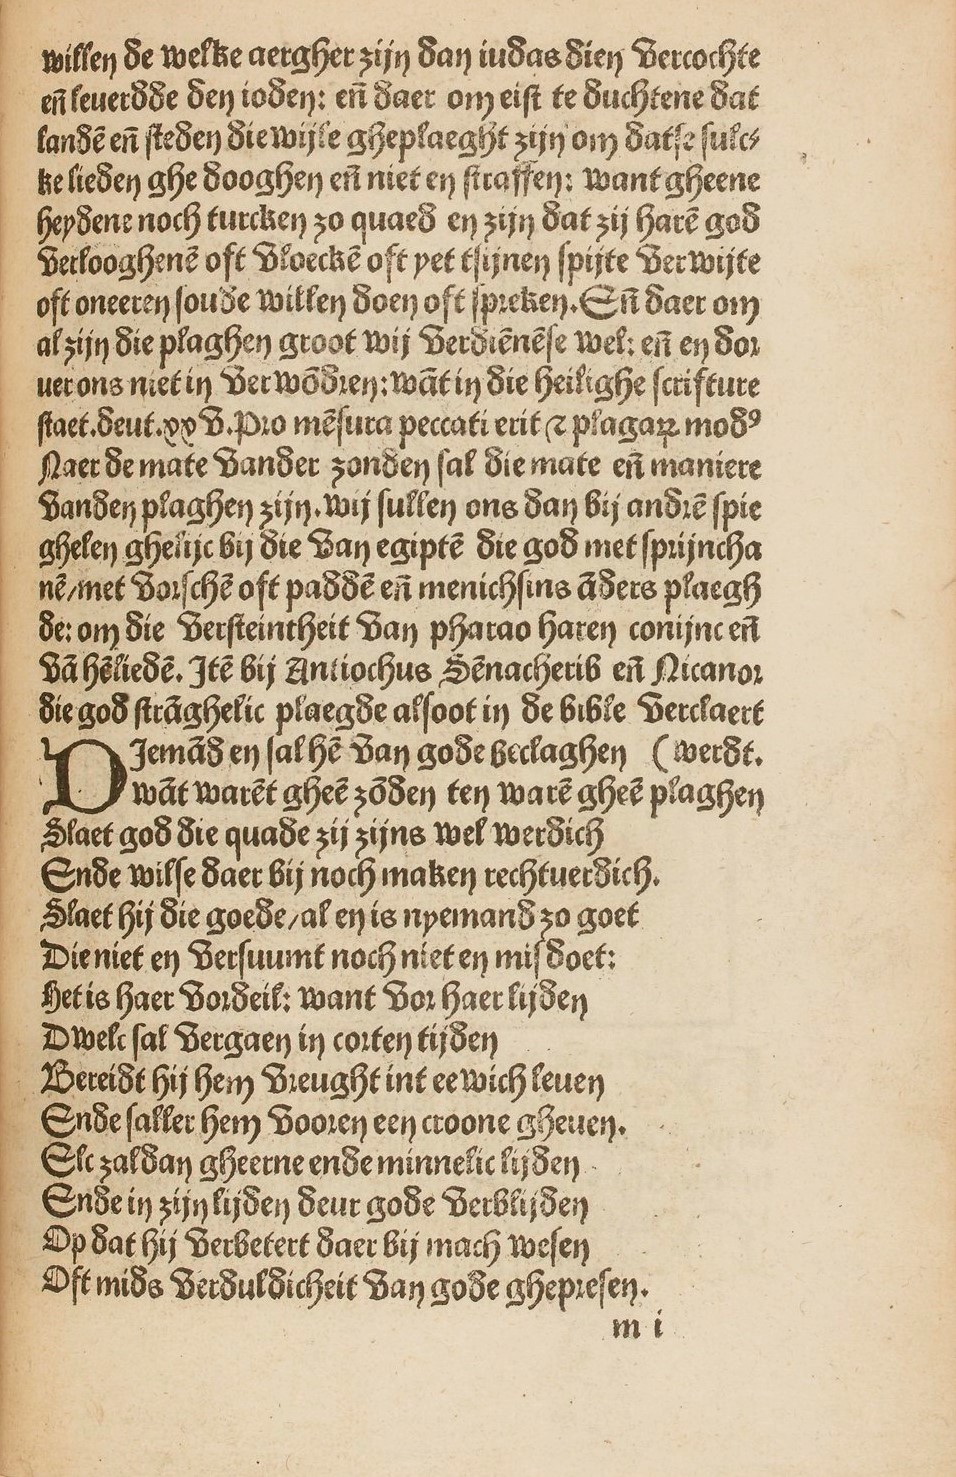 willen de welke aergher zijn dan iudas dien vercochte
eñ leuerdde den ioden: eñ daer om eist te duchtene dat
landē eñ steden die wijle gheplaeght zijn om datse sulc⸗
ke lieden ghe dooghen eñ niet en straffen: want gheene
heydene noch turcken zo quaed en zijn dat zij harē god
verlooghenē oft vloeckē oft yet tsijnen spijte verwijte
oft oneeren soude willen doen oft spreken. Eñ daer om
al zijn die plaghen groot wij verdiēnēse wel: eñ en dor
uer ons niet in verwōdren: wāt in die heilighe scrifture
staet. deut. xxv. Pro mēsura peccati erit ⁊ plagaꝝ modꝰ
Naer de mate vander zonden sal die mate eñ maniere
vanden plaghen zijn. wij sullen ons dan bij andrē spie
ghelen ghelijc bij die van egiptē die god met sprijncha
nē/met vorschē oft paddē eñ menichsins āders plaegh
de: om die versteintheit van pharao haren conijnc eñ
vā hēliedē. Itē bij Antiochus Sēnacherib eñ Nicanor
die god strāghelic plaegde alsoot in de bible verclaert
NIemād en sal hē van gode beclaghen (werdt.
wāt warēt gheē zōden ten warē gheē plaghen
Slaet god die quade zij zijns wel werdich
Ende wilse daer bij noch maken rechtuerdich.
Slaet hij die goede/al en is nyemand zo goet
Die niet en versuumt noch niet en misdoet:
Het is haer vordeil: want vor haer lijden
Dwelc sal vergaen in corten tijden
Bereidt hij hem vreught int eewich leuen
Ende saller hem vooren een croone gheuen.
Elc zal dan gheerne ende minnelic lijden
Ende in zijn lijden deur gode verblijden
Op dat hij verbetert daer bij mach wesen
Oft mids verduldicheit van gode ghepresen.
m i